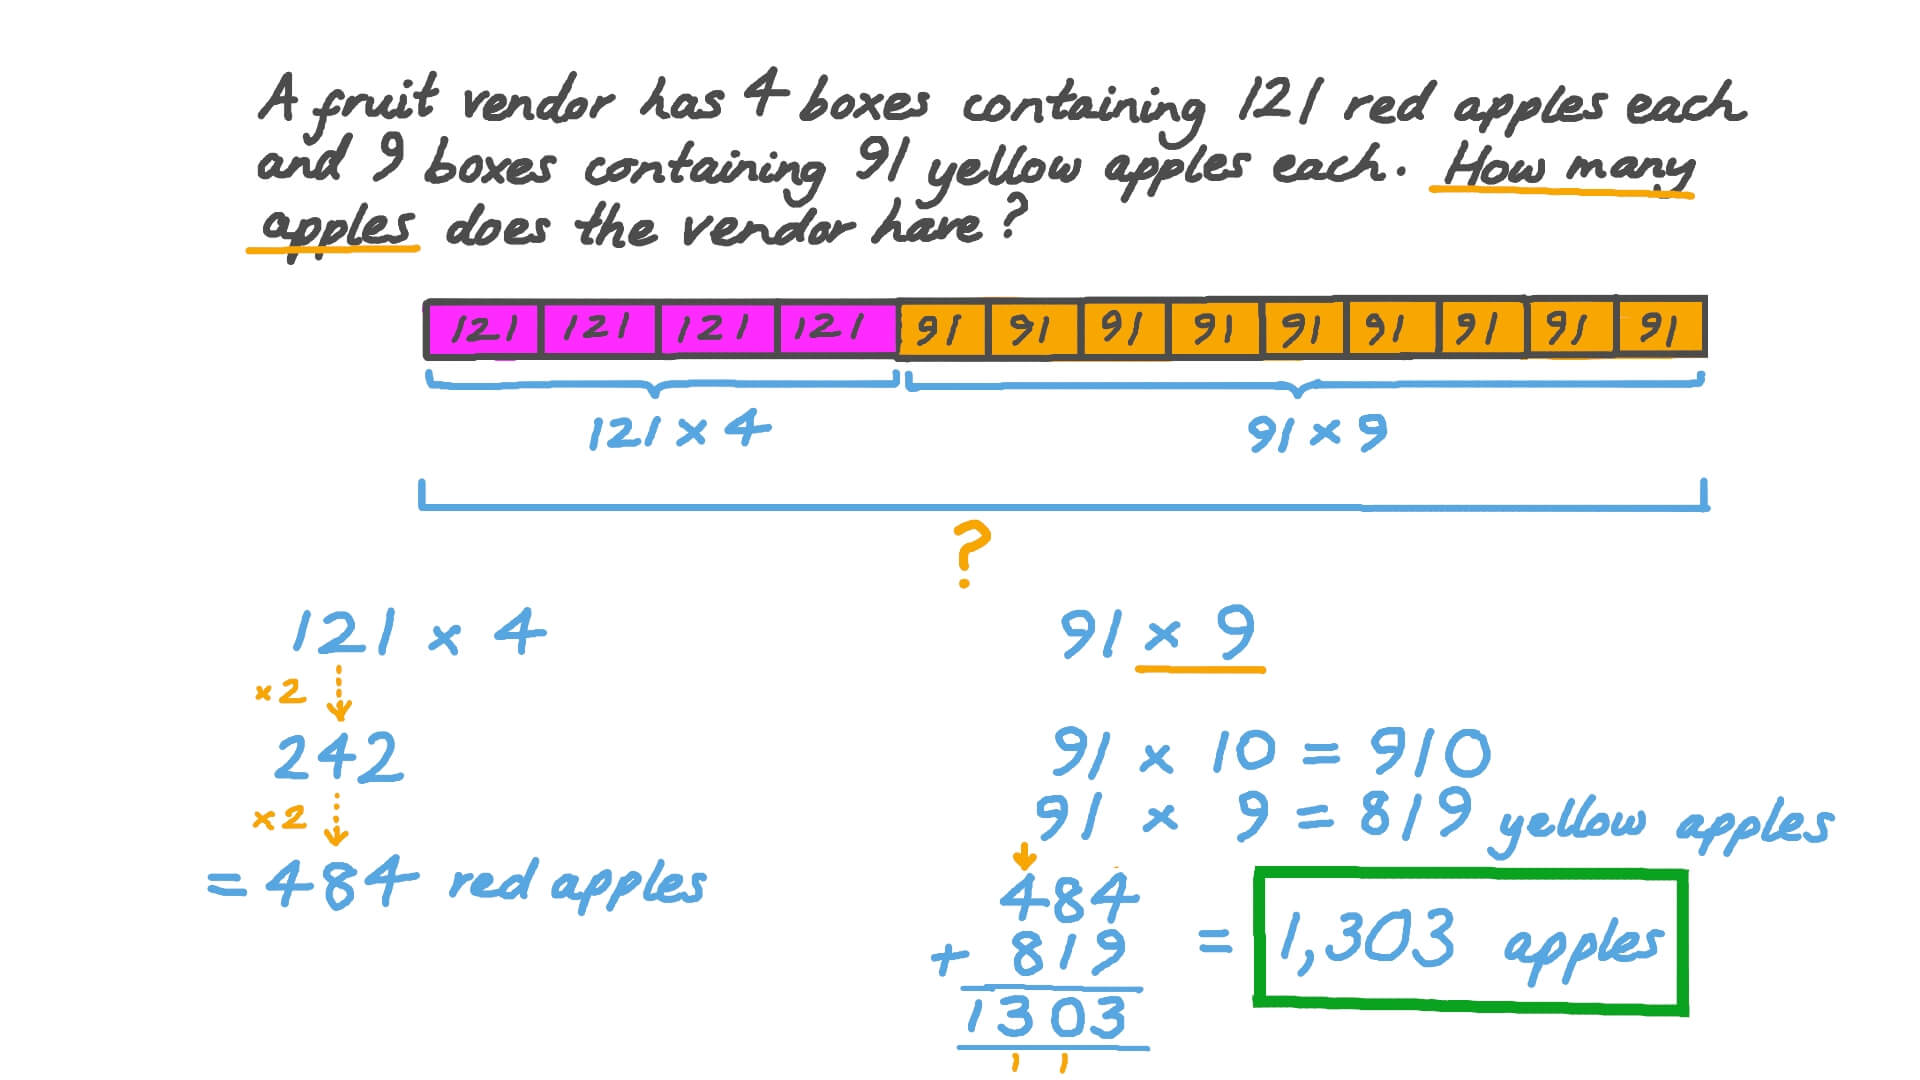 A fruit vendor has 4 boxes containing 121 red apples each
and 9 boxes containing 91 yellow apples each. How many
apples does the vendor have?
121 121 121 121 91 91 91 91 91 91 91 91 91
121 × 4 91 × 9
?
121 × 4
×2
242
×2
= 484 red apples
91 × 9
91 × 10 = 910
91 × 9 = 819 yellow apples
484
+ 819
1303
1 1
= 1,303 apples